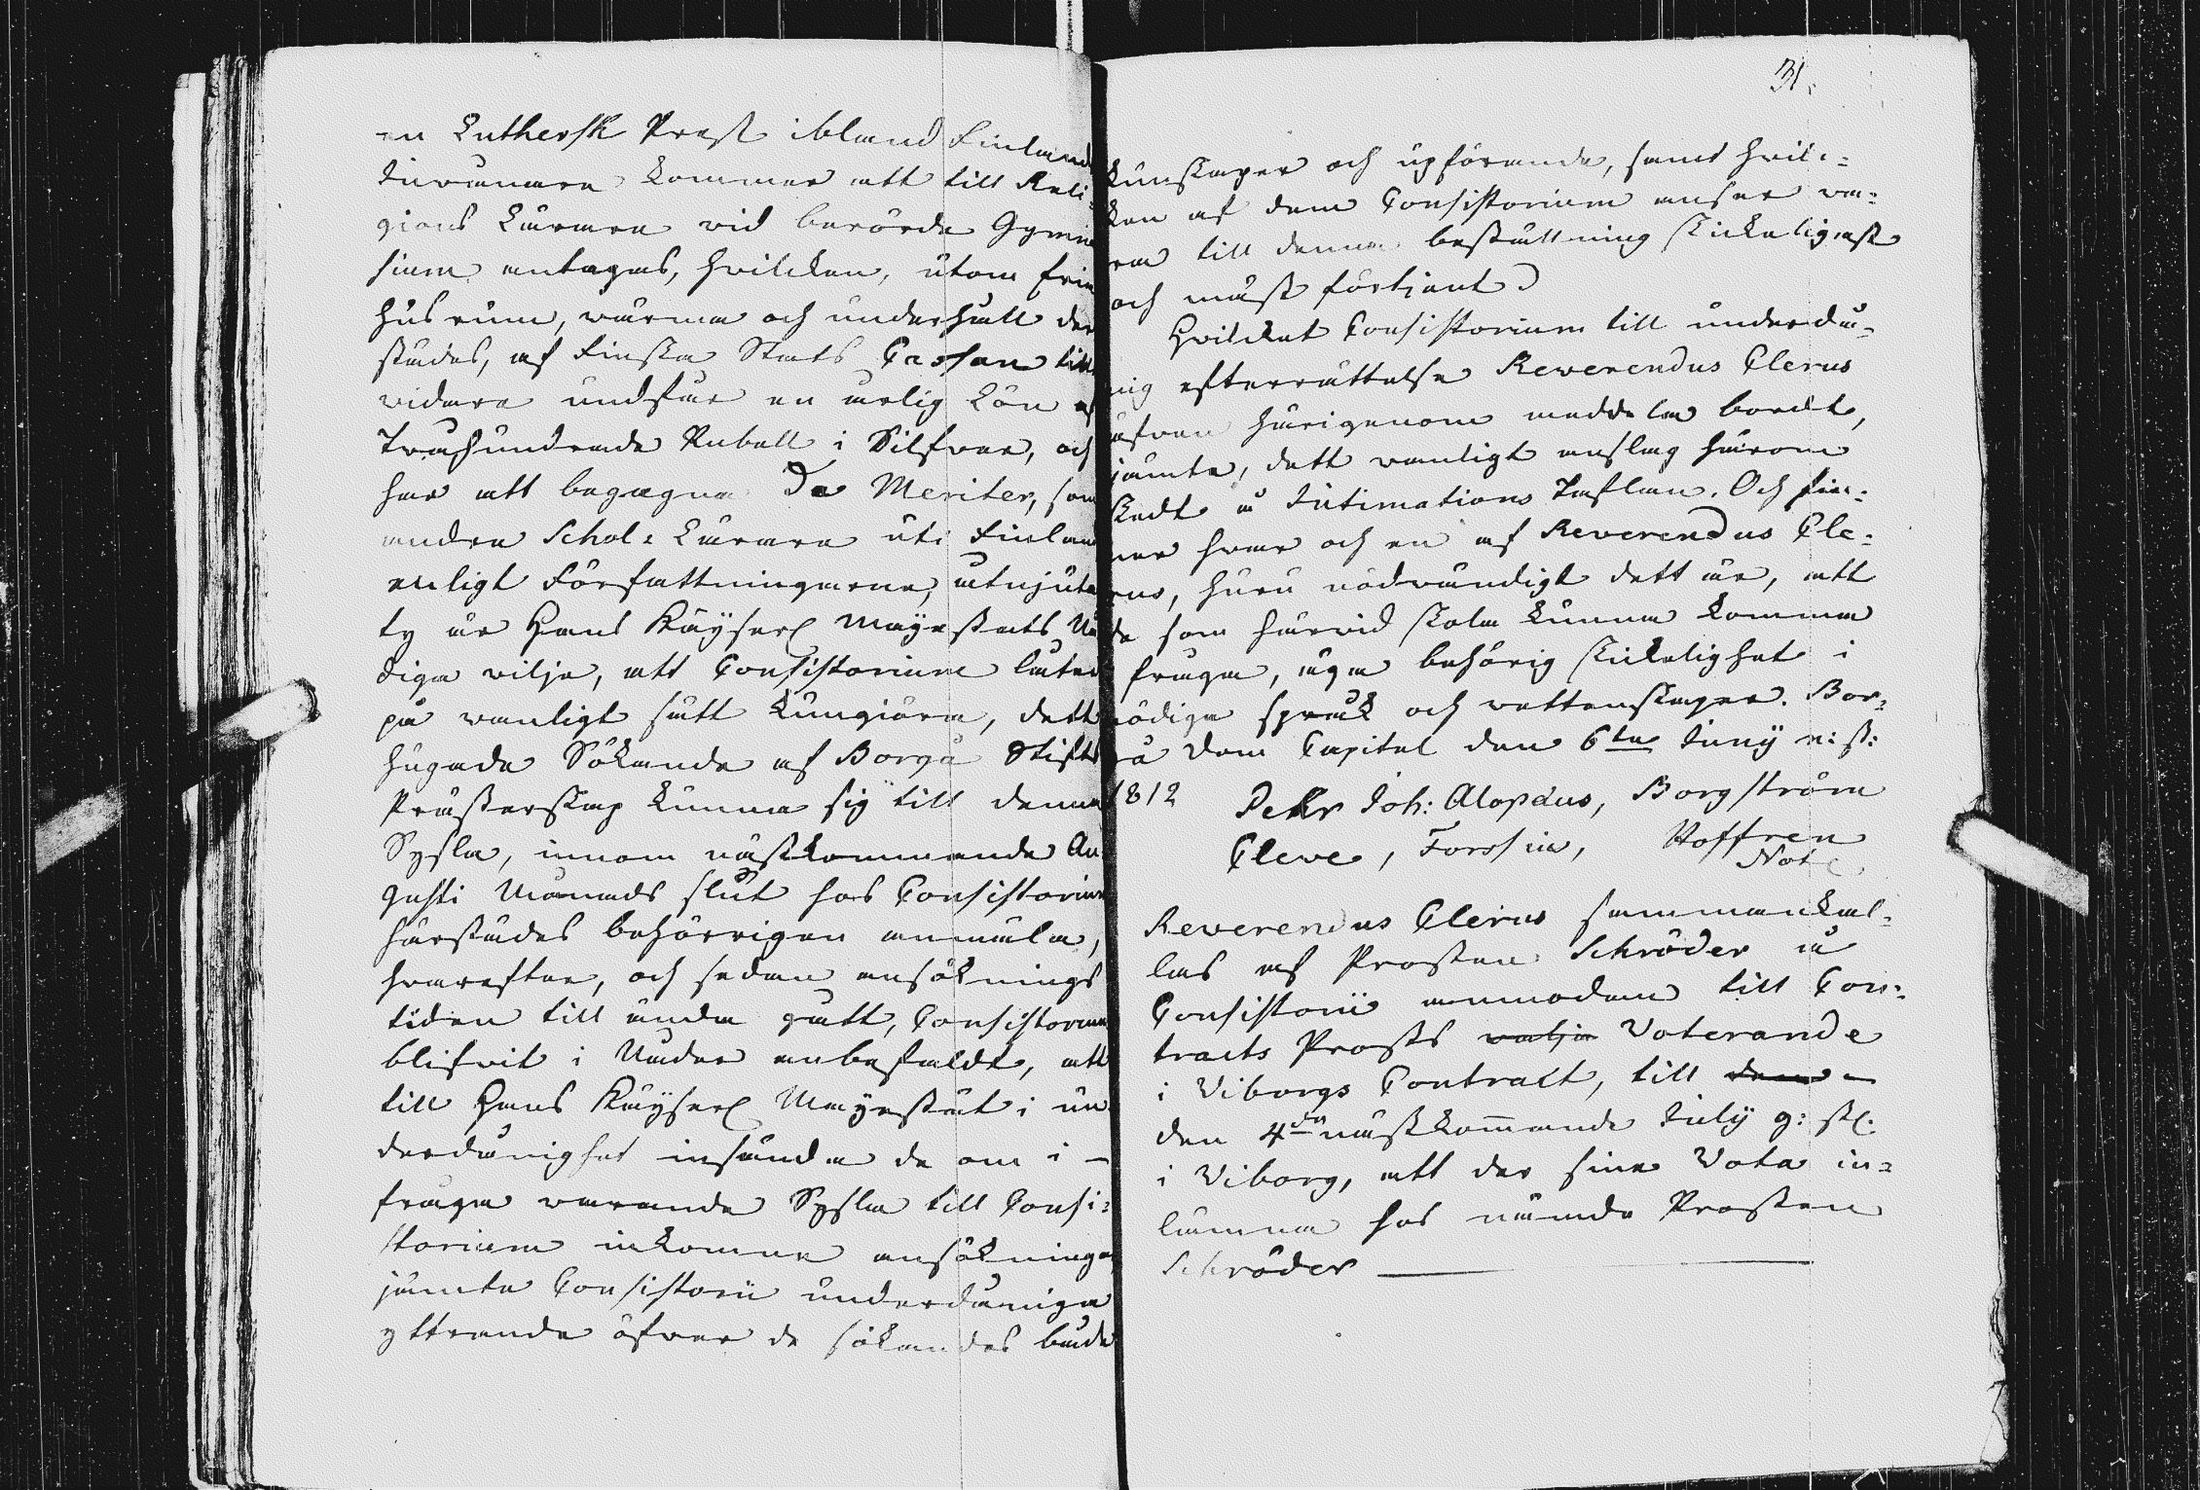 en Luthersk Prest ibland Finlands
Inwånare kommer att till Reli-
gions Lärare vid berörde Gymna
sium antagas, hvilcken, utom fria
husrum, wärme och underhåll der
städes, af Finska Stats Cassan till
vidare undfår en årlig Lön af
Twåhundrade Rubell i Silfwer, och
har att begagna De Meriter, som
andra Schol- Lärare uti Finland
enligt Författningarne, åtnjuta
ty är Hans Käyserl Mayestäts Nå
diga vilje, att Consistorium låter
på wanligt sätt kungiöra, dett
hugade Sökande af Borgå Stifts
Prästerskap kunna sig till denna
Sysla, innom nästkommande Au
gusti Månads slut hos Consistorium
härstädes behörrigen anmäla,
hwarefter, och sedan ansöknings
tiden till ända gått, Consistorium
blifvit i Nåder anbefaldt, att
till Hans Käyserl Mayestät i un
derdånighet insända de om i-
fråga warande Sysla till Consi-
storium inkomne ansökningar
jämte Consistorii underdåniga
yttrande öfwer de sökandes både
31.
kunskaper och upförande, samt hvil-
ken af dem Consistorium anser wa-
ra till denna beställning skickeligast
och mäst förtjent.
Hvilcket Consistorium till underdå-
nig efterrättelse Reverendus Clerus
äfven härigenom meddela bordt,
jämte, dett wanligt anslag härom
skedt å Intimations Taflan. Och fin-
ner hwar och en af Reverendus Cle-
rus, huru nödwändigt dett är, att
de som härvid skola kunna komma
i fråga, äga behörig skickelighet i
nödiga språk och wettenskaper. Bor-
gå Dom Capitel den 6te Juny n: st:
1812 Petr Joh: Alopæus, Borgström
Cleve, Forssin, Hoffren
Not
Reverendus Clerus sammankal-
las af Prosten Schröder å
Consistorii anmodan till Con-
tracts Prosts walja Voterande
i Viborgs Contract, till den -
den 4de nästkommande July g: stl.
i Viborg, att der sina Vota in-
lämna hos nämde Prosten
Schröder